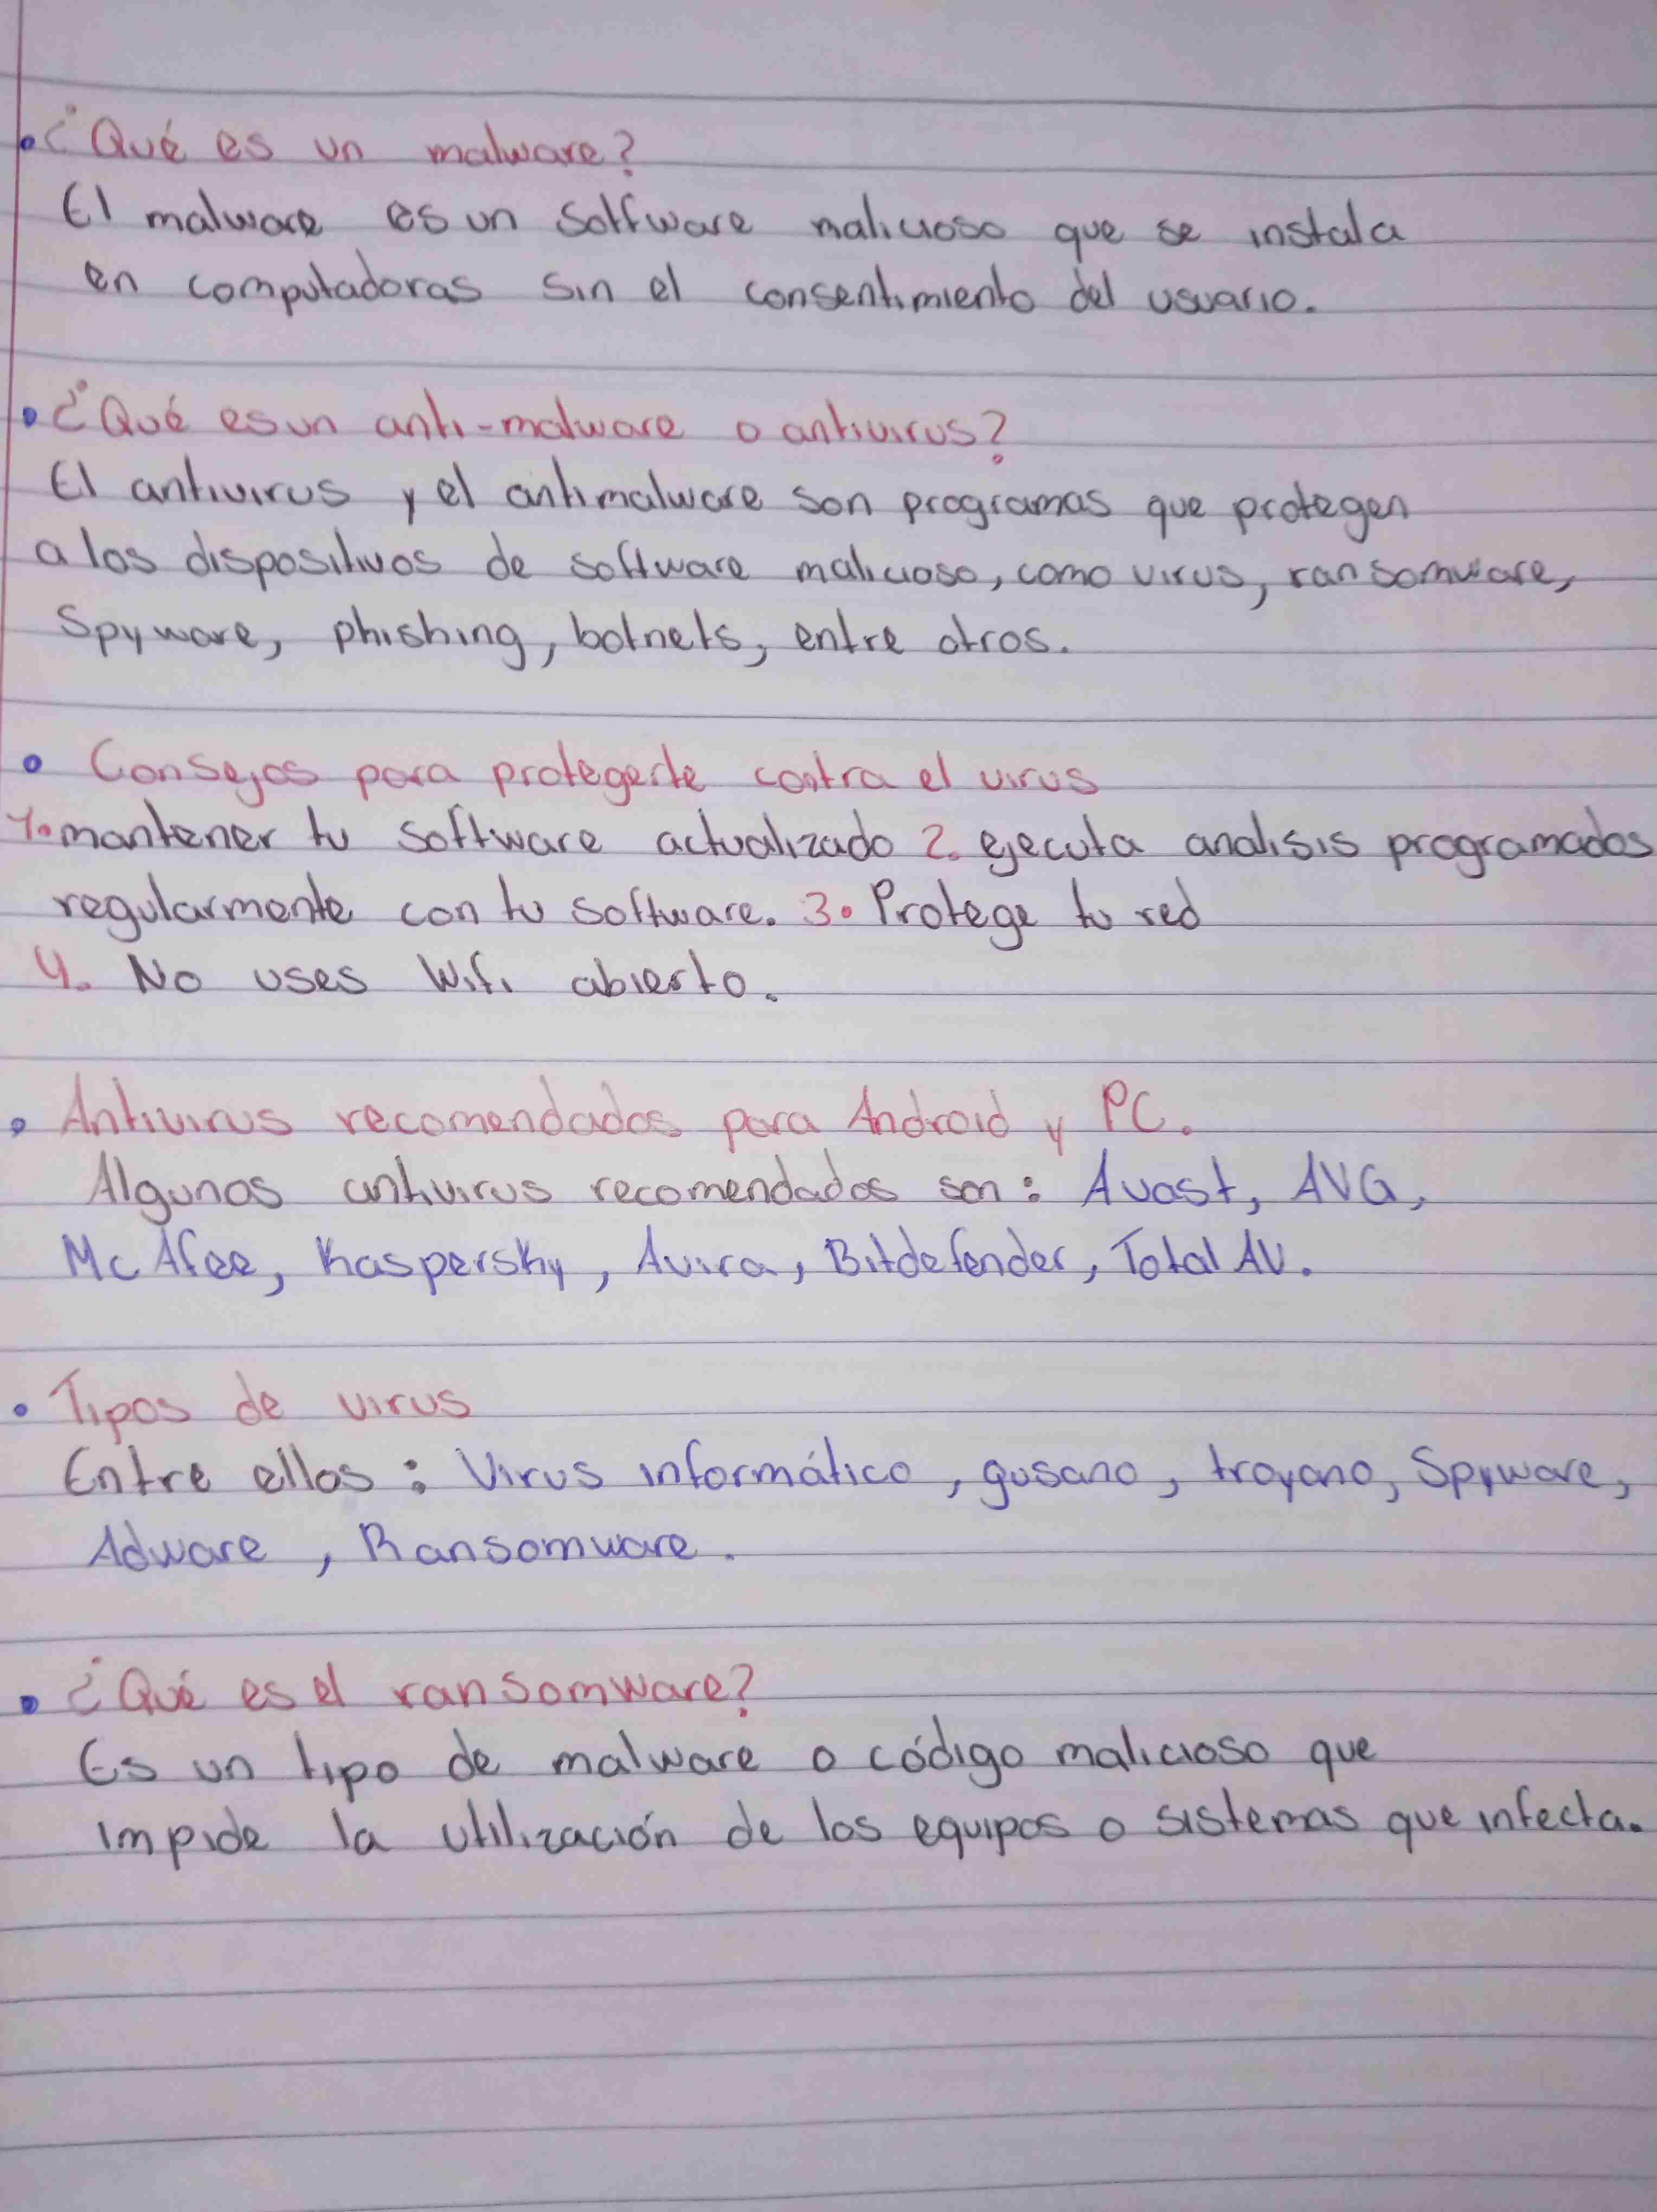 • ¿Qué es un malware?
El malware es un software malicioso que se instala
en computadoras sin el consentimiento del usuario.
• ¿Qué es un anti-malware o antivirus?
El antivirus y el antimalware son programas que protegen
a los dispositivos de software malicioso, como virus, ransomware,
Spyware, phishing, botnets, entre otros.
• Consejos para protegerte contra el virus
1. mantener tu software actualizado 2. ejecuta analisis programados
regularmente con tu software. 3. Protege tu red
4. No uses Wifi abierto.
• Antivirus recomendados para Android y PC.
Algunos antivirus recomendados son: Avast, AVG,
McAfee, Kaspersky, Avira, Bitdefender, Total AV.
• Tipos de virus
Entre ellos: Virus informático, gusano, troyano, Spyware,
Adware, Ransomware.
• ¿Qué es el ransomware?
Es un tipo de malware o código malicioso que
impide la utilización de los equipos o sistemas que infecta.